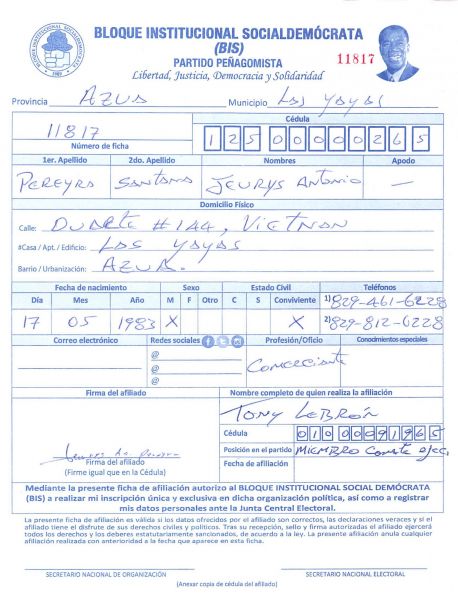 BLOQUE INSTITUCIONAL SOCIALDEMÓCRATA
(BIS)
PARTIDO PEÑAGOMISTA
11817
Libertad, Justicia, Democracia y Solidaridad
Provincia AZUA Municipio LAS YAYAS
11817
Número de ficha
Cédula
12500000265
1er. Apellido 2do. Apellido Nombres Apodo
PEREYRA SANTANA JEURYS ANTONIO —
Domicilio Físico
Calle: DUARTE #144, VIETNAN
#Casa / Apt. / Edificio: LAS YAYAS
Barrio / Urbanización: AZUA.
Fecha de nacimiento Sexo Estado Civil Teléfonos
Día Mes Año M F Otro C S Conviviente 1) 829-461-6228
17 05 1983 X X 2) 829-812-6228
Correo electrónico Redes sociales Profesión/Oficio Conocimientos especiales
@
@
@
Comerciante
Firma del afiliado Nombre completo de quien realiza la afiliación
TONY LEBRÓN
Cédula 01000091965
Posición en el partido MIEMBRO Comité ejec.
Fecha de afiliación
Firma del afiliado
(Firme igual que en la Cédula)
Mediante la presente ficha de afiliación autorizo al BLOQUE INSTITUCIONAL SOCIAL DEMÓCRATA
(BIS) a realizar mi inscripción única y exclusiva en dicha organización política, así como a registrar
mis datos personales ante la Junta Central Electoral.
La presente ficha de afiliación es válida si los datos ofrecidos por el afiliado son correctos, las declaraciones veraces y si el
afiliado tiene el disfrute de sus derechos civiles y políticos. Tras su recepción, sello y firma autorizadas el afiliado ejercerá
todos los derechos y los deberes estatutariamente sancionados, de acuerdo a la ley. La presente afiliación anula cualquier
afiliación realizada con anterioridad a la fecha que aparece en esta ficha.
SECRETARIO NACIONAL DE ORGANIZACIÓN SECRETARIO NACIONAL ELECTORAL
(Anexar copia de cédula del afiliado)